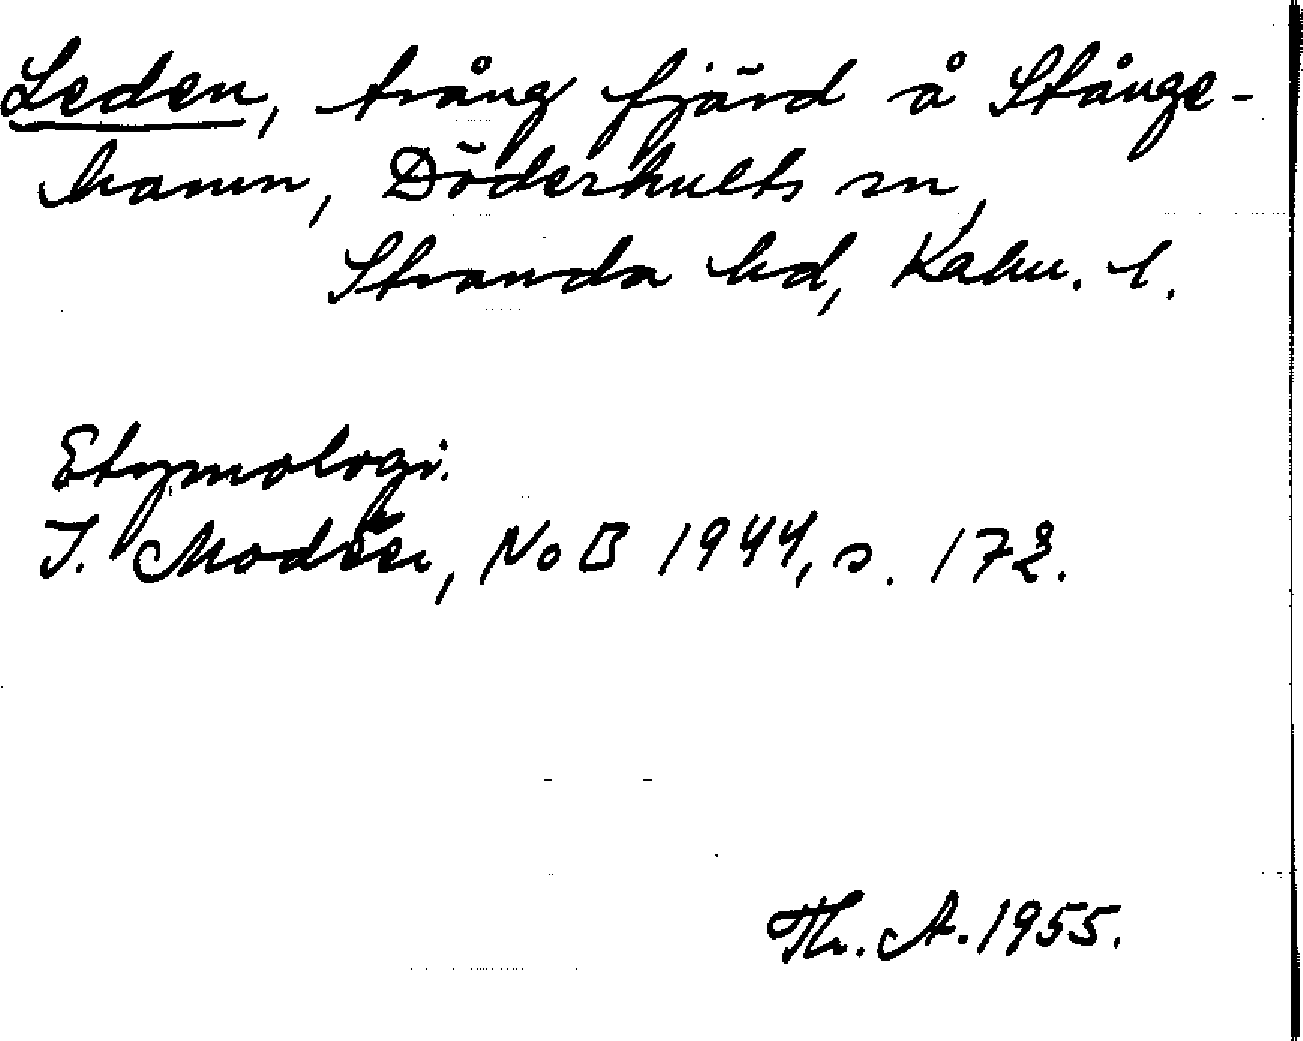 Leden, trång fjärd å Stånge-
hamn, Döderhults sn,
Stranda hd, Kalm. l.
Etymologi.
I. Modéer, NoB 1944, s. 172.
Th. A. 1955.